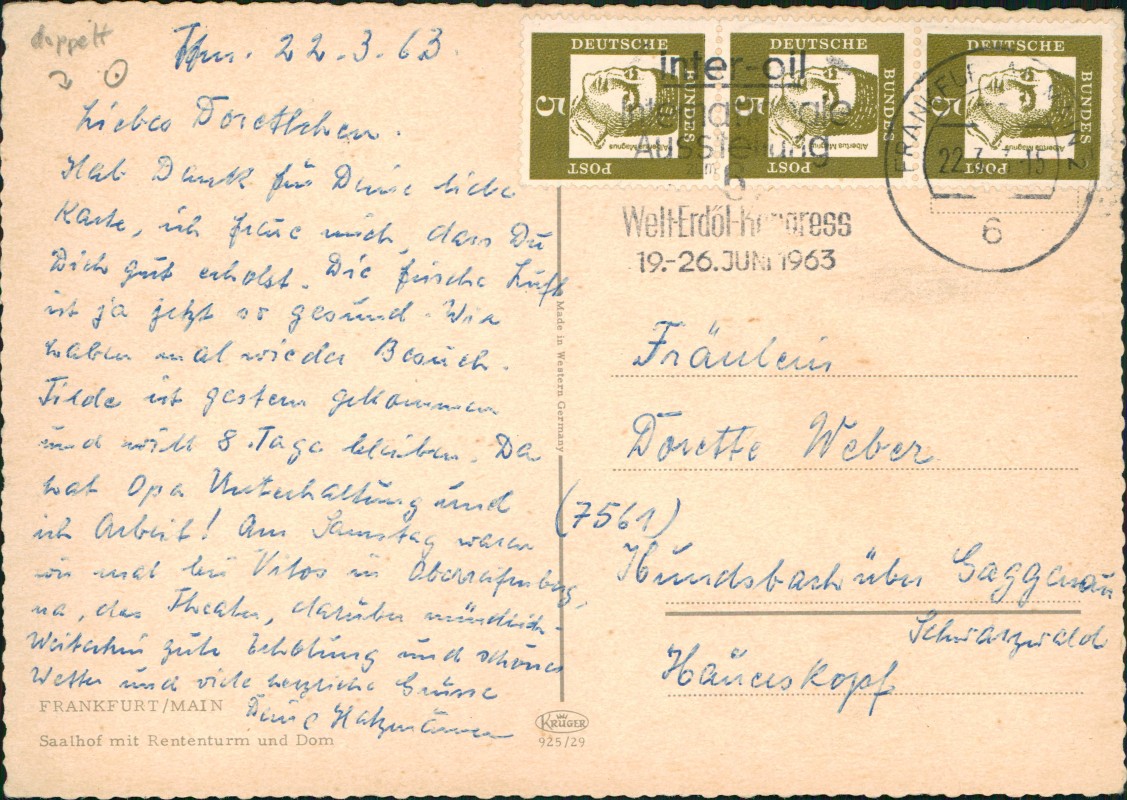 doppelt
22.3.63.
Liebes Dorettchen.
Hab Dank für Deine liebe
Karte, ich freue mich, dass Du
Dich gut erholst. Die frische Luft
ist ja jetzt so gesund. Wir
haben mal wieder Besuch.
Tilde ist gestern gekommen
und will 8 Tage bleiben. Da
hat Opa Unterhaltung und
ich Arbeit! Am Samstag waren
wir mal bei Vitos in Oberreifenberg,
na, das Theater, darüber mündlich.
Weiterhin gute Erholung und schönes
Wetter und viele herzliche Grüsse
Deine
FRANKFURT/MAIN
Saalhof mit Rententurm und Dom
Made in Western Germany
KRÜGER
925/29
DEUTSCHE BUNDES POST 5 Albertus Magnus
DEUTSCHE BUNDES POST 5 Albertus Magnus
DEUTSCHE BUNDES POST 5
inter-oil
Internationale
Ausstellung
6
Welt-Erdöl-Kongress
19.-26. JUNI 1963
22. 15
6
Fräulein
Dorette Weber
(7561)
Hundsbach über Gaggenau
Schwarzwald